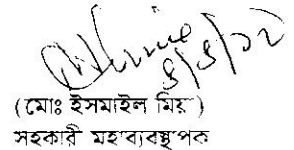 ৪/৯/১২
(মোঃ ইসমাইল মিয়া)
সহকারী মহাব্যবস্থাপক